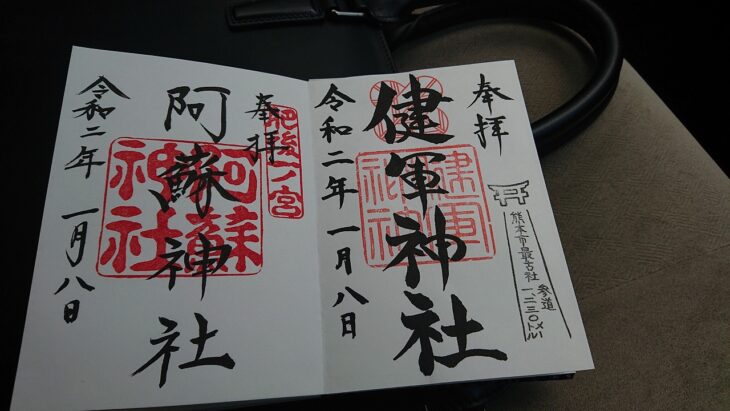 奉拝
健軍神社
令和二年一月八日
健軍神社
熊本市最古社
参道一、二三〇メートル
奉拝
肥後一ノ宮
阿蘇神社
阿蘇神社
令和二年一月八日